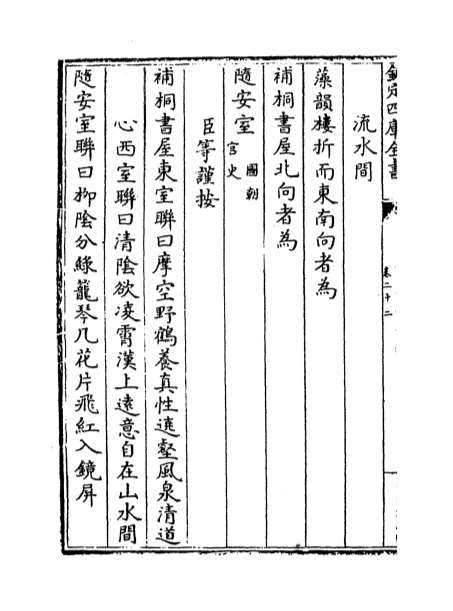 欽定四庫全書
卷二十二
流水間
藻韻樓折而東南向者為
補桐書屋北向者為
隨安室 國朝
宫史
臣等謹按
補桐書屋東室聯曰摩空野鶴養真性遶壑風泉清道
心西室聯曰清陰欲凌霄漢上遠意自在山水間
隨安室聯曰柳陰分綠籠琴几花片飛紅入鏡屏